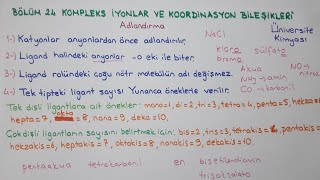 BÖLÜM 24 KOMPLEKS İYONLAR VE KOORDİNASYON BİLEŞİKLERİ
Adlandırma
Üniversite
Kimyası
NaCl
1-) Katyonlar anyonlardan önce adlandırılır.
kloro sülfato
2-) Ligand halindeki anyonlar -o eki ile biter.
3-) Ligand rolündeki çoğu nötr molekülün adı değişmez.
Akua
NH₃ → amin
CO → karbonil
4-) Tek tipteki ligant sayısı Yunanca öneklerle verilir.
Tek dişli ligantlara ait önekler: mono=1, di=2, tri=3, tetra=4, penta=5, hekza=6,
hepta=7, okta=8, nona=9, deka=10.
Çok dişli ligantların sayısını belirtmek için: bis=2, tris=3, tetrakis=4, pentakis=5,
hekzakis=6, heptakis=7, oktakis=8, nonakis=9, dekakis=10.
pentaakua tetrakarbonil en